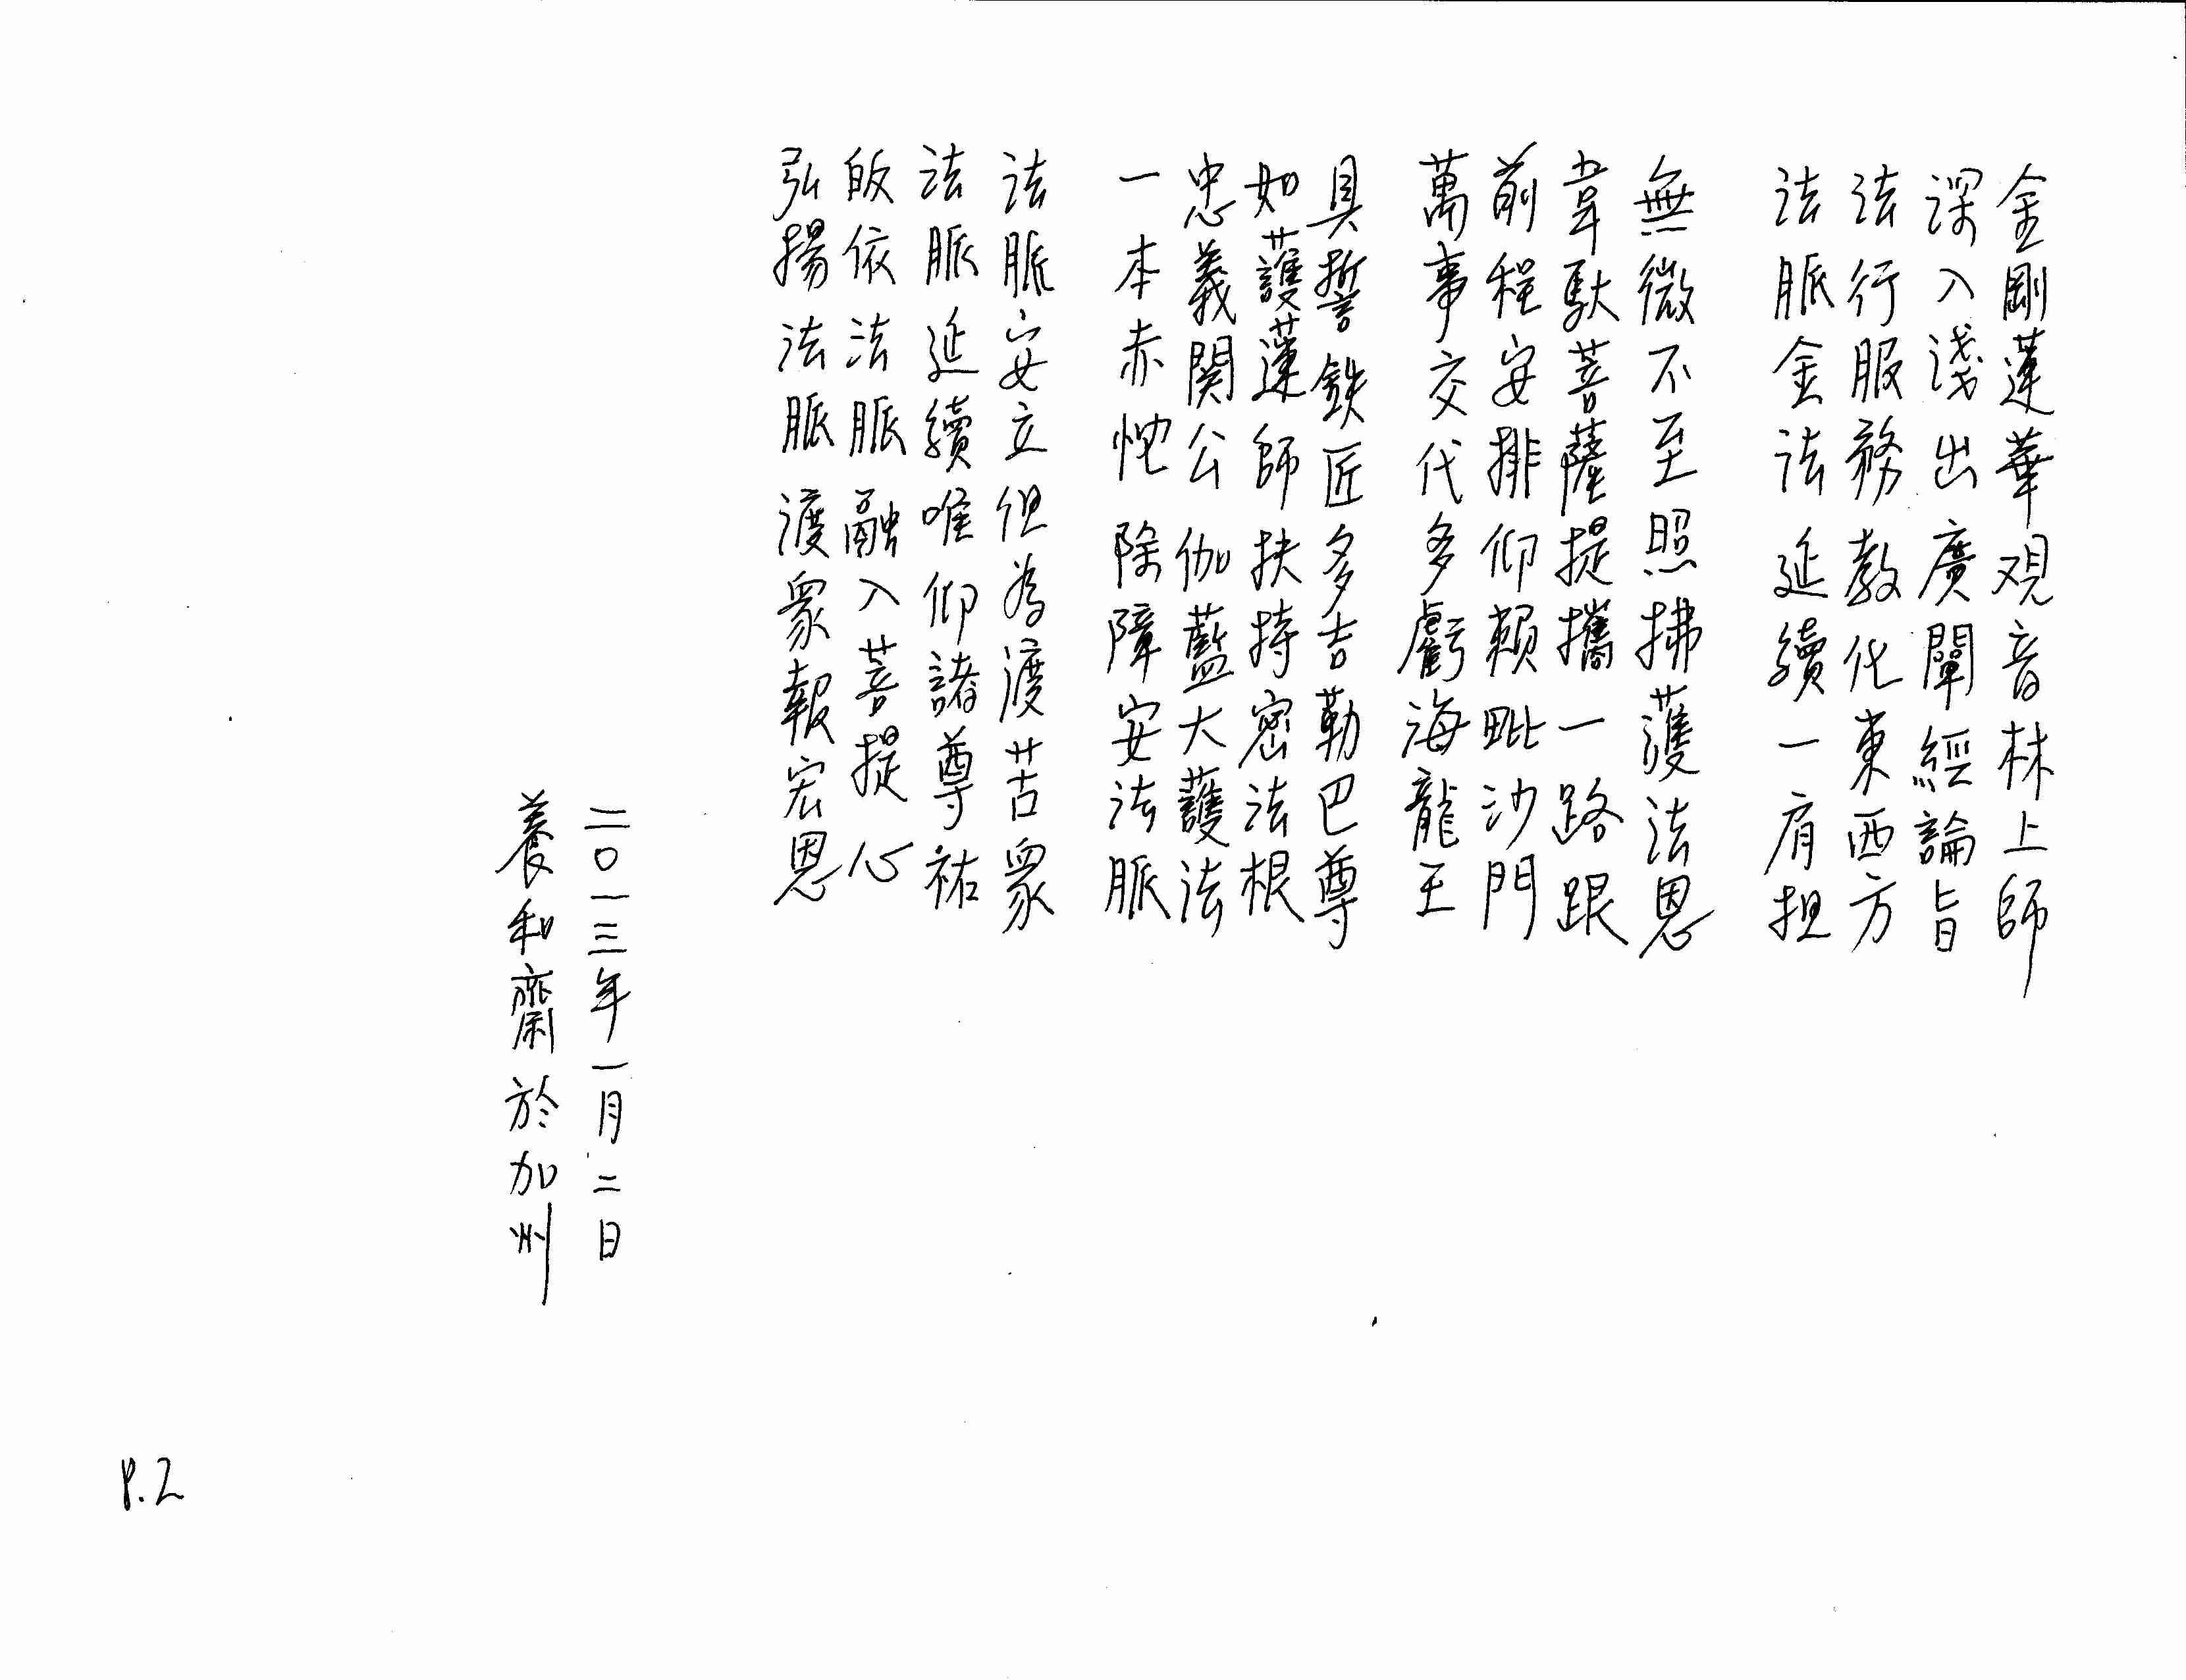 金剛蓮華观音林上師
深入淺出廣闡經論旨
法行服務教化東西方
法脈金法延續一肩担
無微不至照拂護法恩
韋馱菩薩提攜一路跟
前程安排仰賴毗沙門
萬事交代多虧海龍王
具誓鉄匠多吉勒巴尊
如護蓮師扶持密法根
忠義関公伽藍大護法
一本赤忱除障安法脈
法脈安立但為渡苦眾
法脈延續唯仰諸尊祐
皈依法脈融入菩提心
弘揚法脈渡眾報宏恩
二〇一三年一月二日
養和齋於加州
P.2